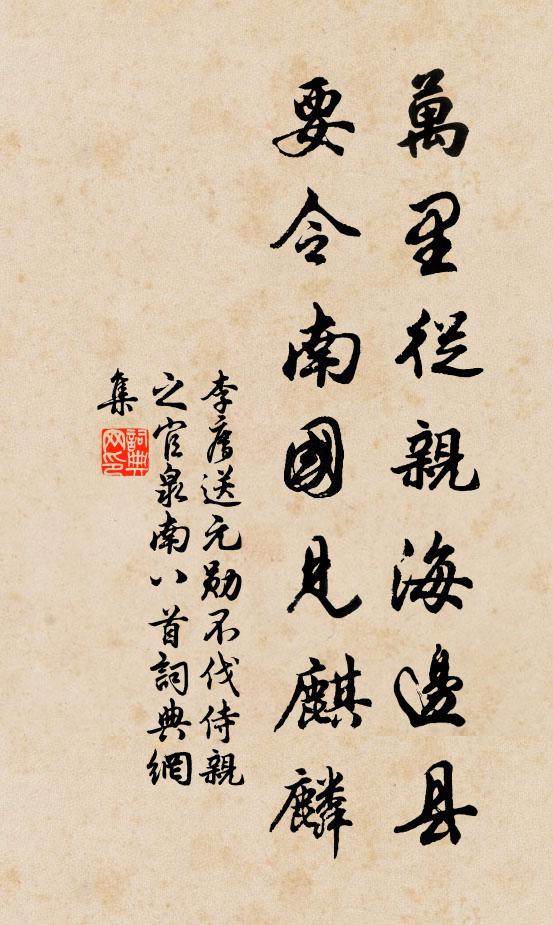 萬里從親海邊县
要令南國見麒麟
李廌送元勛不伐侍親
之官泉南八首詞典網
集
詞典網印